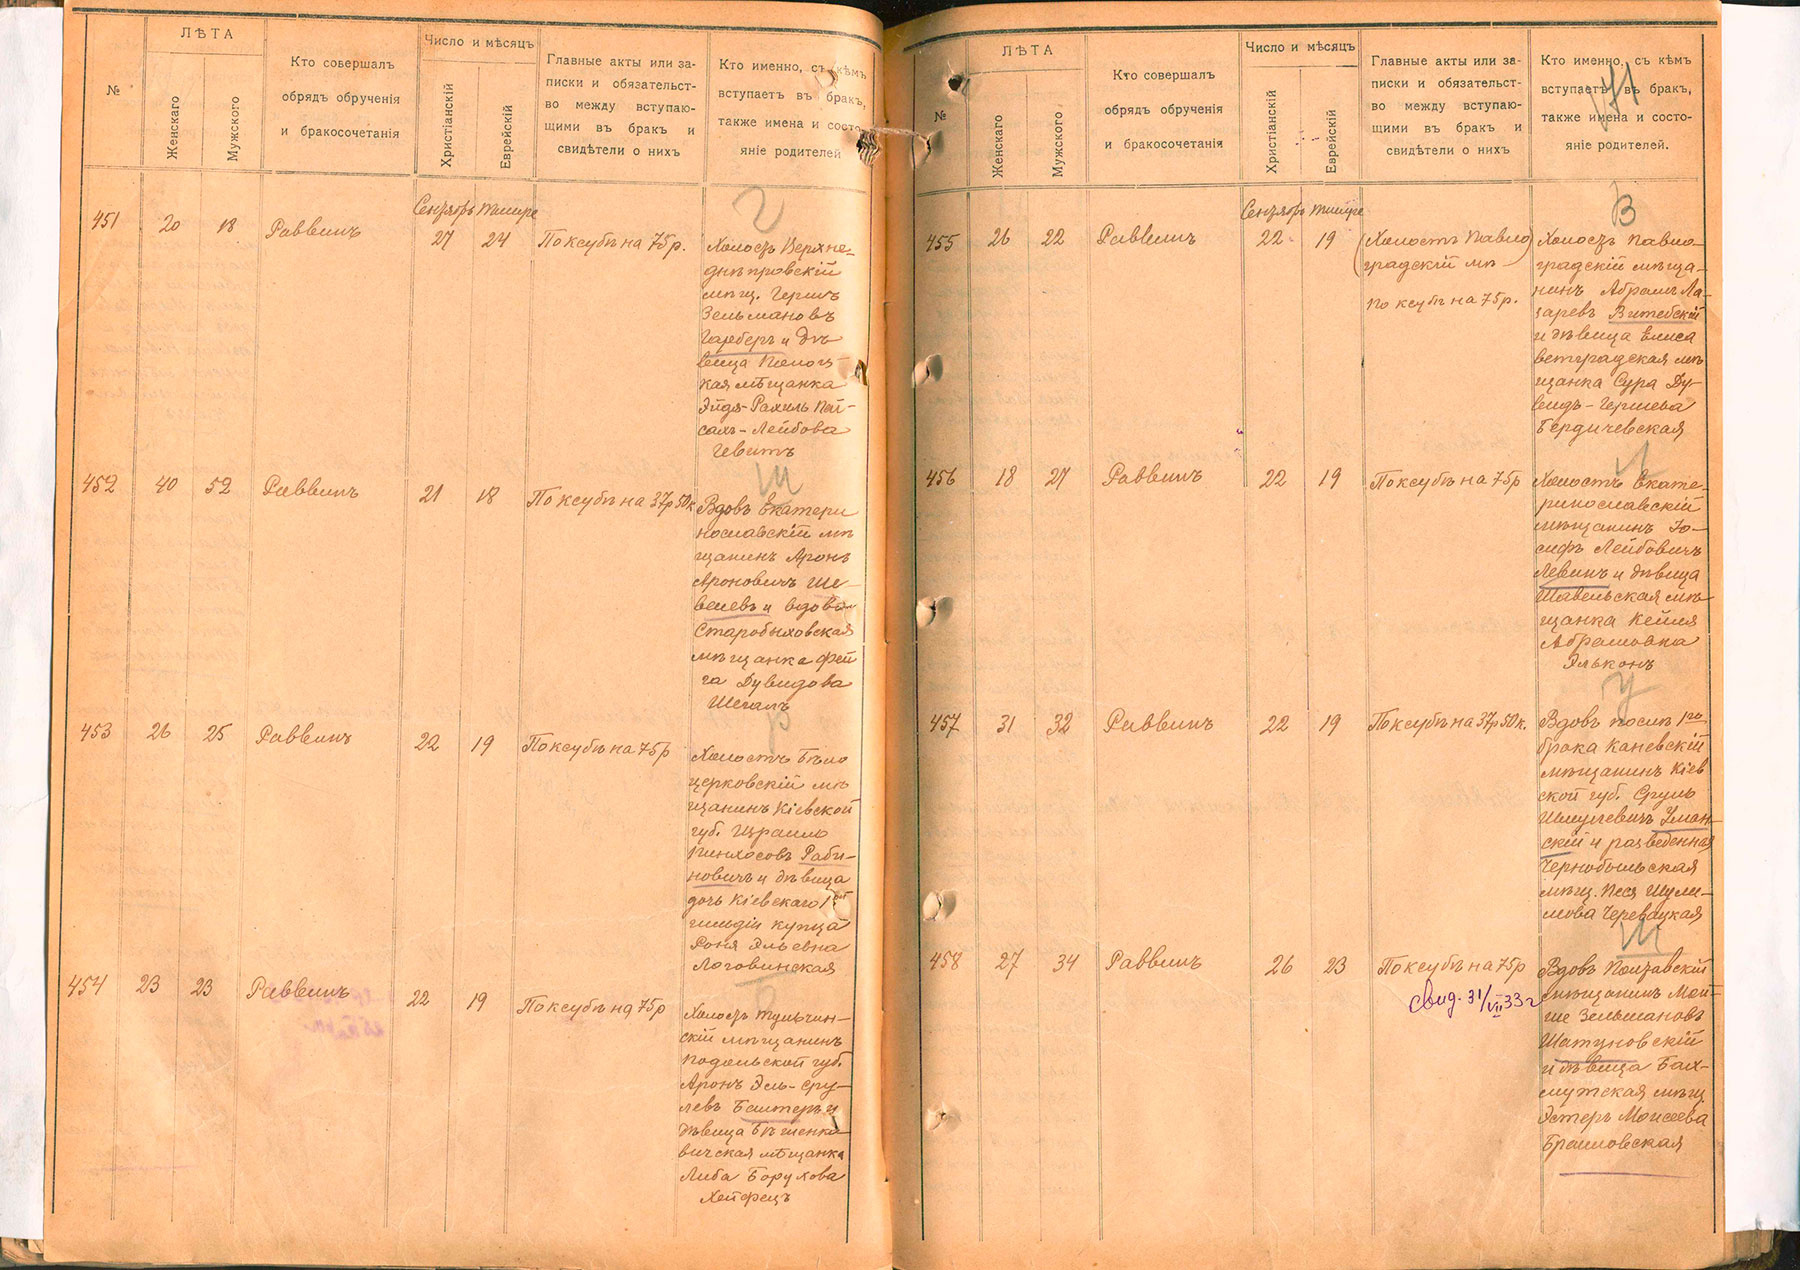 №
ЛѢТА
Женскаго
Мужского
Кто совершалъ
обрядъ обрученія
и бракосочетанія
Число и мѣсяцъ
Христіанскій
Еврейскій
Главные акты или за-
писки и обязательст-
во между вступаю-
щими въ бракъ и
свидѣтели о нихъ
Кто именно, съ кѣмъ
вступаетъ въ бракъ,
также имена и состо-
яніе родителей
Г
Сентябрь Тишре
451 20 18 Раввинъ 27 24 По ксубѣ на 75 р.
Холостъ Верхне-
днѣпровскій
мѣщ. Гершъ
Зельмановъ
Гарберъ и дѣ
вица Полоц-
кая мѣщанка
Эйдя-Рахиль Пей-
сахъ-Лейбова
Гевитъ
Ш
452 40 52 Раввинъ 21 18 По ксубѣ на 37р 50к
Вдовъ Екатери
нославскій мѣ
щанинъ Аронъ
Ароновичъ Ше-
велевъ и вдова
Старобыховская
мѣщанка Фей
га Дувидова
Шегалъ
Р
453 26 25 Раввинъ 22 19 По ксубѣ на 75р
Холостъ Бѣло
церковскій мѣ
щанинъ Кіевской
губ. Израиль
Пинхосовъ Раби-
новичъ и дѣвица
дочь Кіевскаго 1ой
гильдіи купца
Роня Эльевна
Логовинская
Б
454 23 23 Раввинъ 22 19 По ксубѣ на 75р
Холостъ Тульчин-
скій мѣщанинъ
Подольской губ.
Аронъ Эль-Сру-
левъ Балтеръ и
дѣвица Бѣшенко
вичская мѣщанка
Либа Борухова
Хейфецъ
71
№
ЛѢТА
Женскаго
Мужского
Кто совершалъ
обрядъ обрученія
и бракосочетанія
Число и мѣсяцъ
Христіанскій
Еврейскій
Главные акты или за-
писки и обязательст-
во между вступаю-
щими въ бракъ и
свидѣтели о нихъ
Кто именно, съ кѣмъ
вступаетъ въ бракъ,
также имена и состо-
яніе родителей.
В
Сентябрь Тишре
455 26 22 Раввинъ 22 19 (Холостъ Павло)
градскій мѣ
По ксубѣ на 75р.
Холостъ Павло-
градскій мѣща-
нинъ Абрамъ Ла-
заревъ Витебскій
и дѣвица Елиса
ветградская мѣ
щанка Сура Ду-
видъ-Гершева
Бердичевская
Л
456 18 27 Раввинъ 22 19 По ксубѣ на 75р
Холостъ Екате-
ринославскій
мѣщанинъ Іо-
сифъ Лейбовичъ
Левинъ и дѣвица
Шавельская мѣ
щанка Кейля
Абрамовна
Эльконъ
У
457 31 32 Раввинъ 22 19 По ксубѣ на 37р 50к.
Вдовъ послѣ 1го
брака Каневскій
мѣщанинъ Кіев
ской губ. Сруль
Шмулевичъ Уман-
скій и разведенная
Чернобыльская
мѣщ. Песя Шули-
мова Черевацкая
Ш
458 27 34 Раввинъ 26 23 По ксубѣ на 75р
свид. 31/VII 33 г
Вдовъ Полтавскій
мѣщанинъ Мой-
ше Зельмановъ
Шатуновскій
и дѣвица Бах-
мутская мѣщ
Эстеръ Моисеева
Браиловская